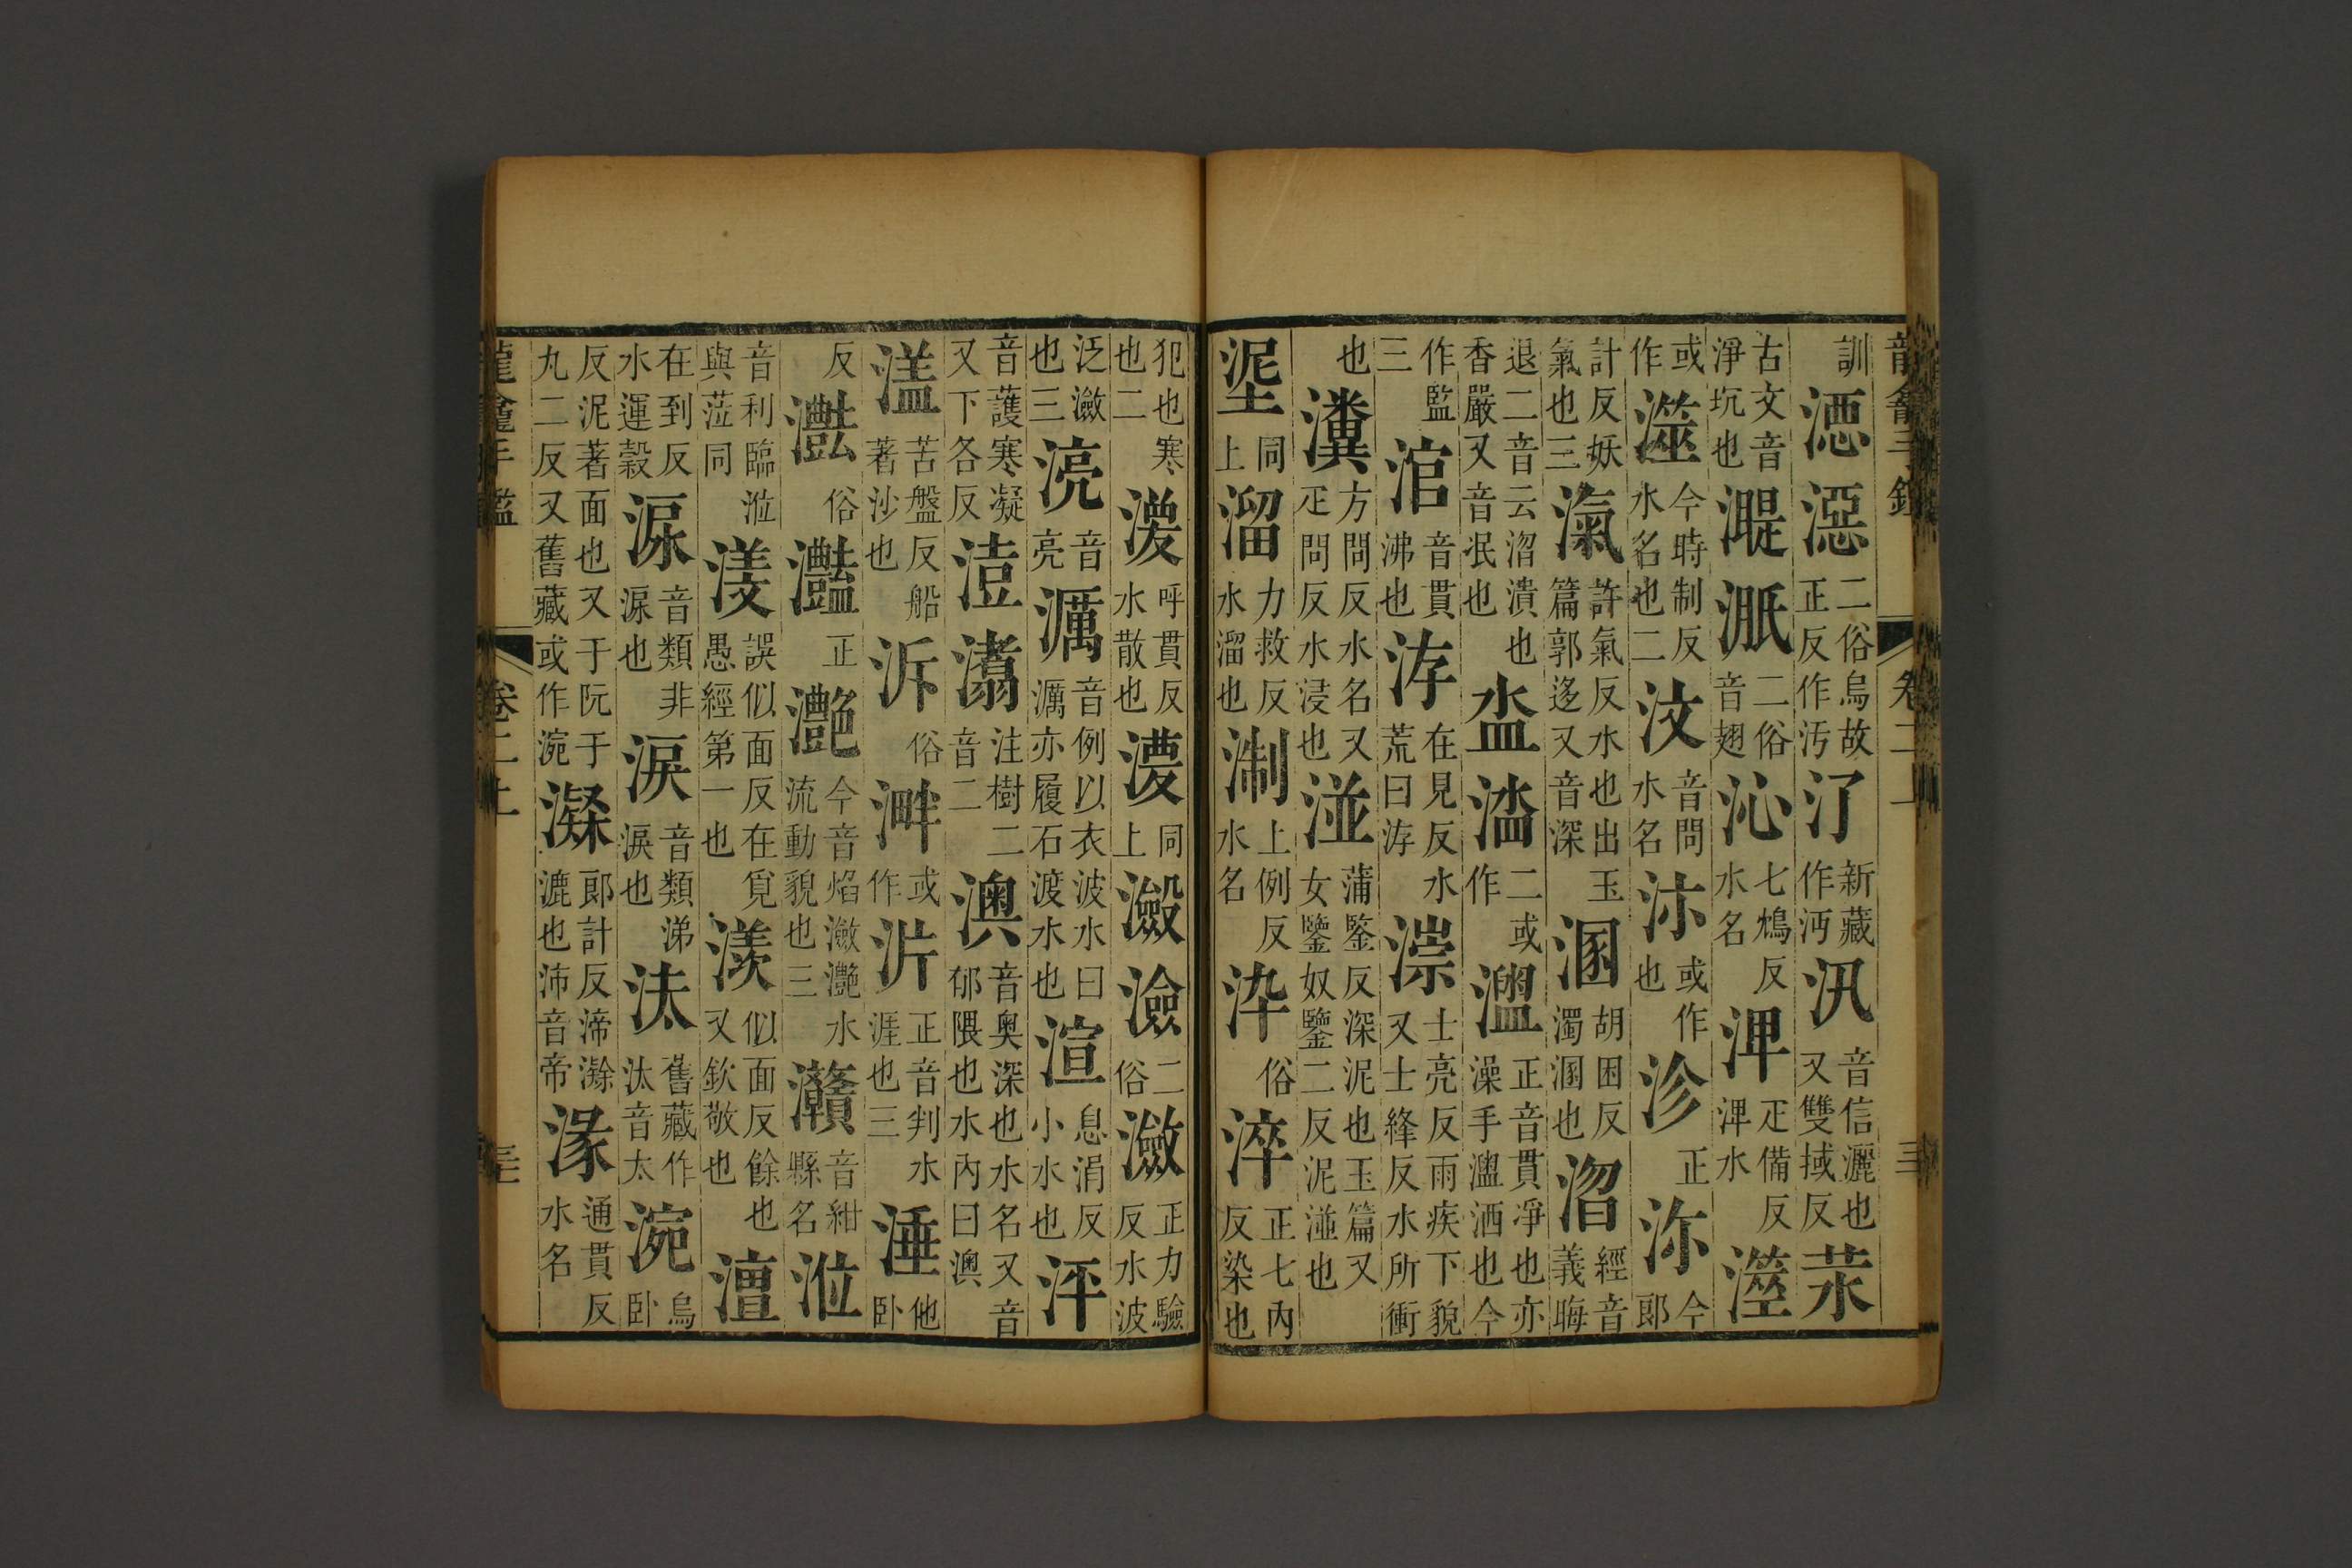 龍龕手鑑 卷二上 三
訓 湮 㵣 二俗烏故正反作汚 汿 新藏作沔 汛 音信灑也又雙㧒反 汖
古文音淨坑也 湜 泜 二俗音翅 沁 七鴆反水名 淠 疋備反淠水 澨
或作 澨 今時制反水名也二 汶 音問水名 沶 或作也 沴 正 沵 今郎
計反妖氣也三 滊 許氣反水也出玉篇郭迻又音深 溷 胡困反濁溷也 淴 經音義晦
退二音云淴潰也香嚴又音泯也 㳑 湓 二或作 盥 正音貫凈也亦澡手盥洒也今
作監三 涫 音貫沸也 洊 在見反水荒曰洊 漴 士亮反雨疾下貌又士絳反水所衝
也 瀵 方問反水名又疋問反水浸也 湴 蒲鑒反深泥也玉篇又女鑒奴鑒二反泥湴也
埿 同上 溜 力救反水溜也 淛 上例反水名 染 俗 淬 正七內反染也
犯也寒也二 渙 呼貫反水散也 澓 同上 瀫 澰 二俗 瀲 正力驗反水波
泛瀲也三 湸 音亮 濿 音例以衣波水曰濿亦履石渡水也 渲 息涓反小水也 泙
音護寒凝又下各反 澍 㵭 注樹二音二 澳 音奧深也水名又音郁隈也水內曰澳
溘 苦盤反船著沙也 泝 俗 溿 或作 泮 正音判水涯也三 涶 他臥
反 灎 俗 灩 正 灔 今音焰瀲灔水流動貌也三 灨 音紺縣名 涖
音利臨涖與蒞同 湲 誤似面反在寬愚經第一也 羨 似面反餘也又欽敬也 澶
在到反水運穀 淚 音類非淚也 淚 音類涕淚也 汰 舊藏作汰音太 涴 烏臥
反泥著面也又于阮于丸二反又舊藏或作涴 濝 郎計反渧漉也沛音帝 湪 通貫反水名
龍龕手鑑 卷二上 三七